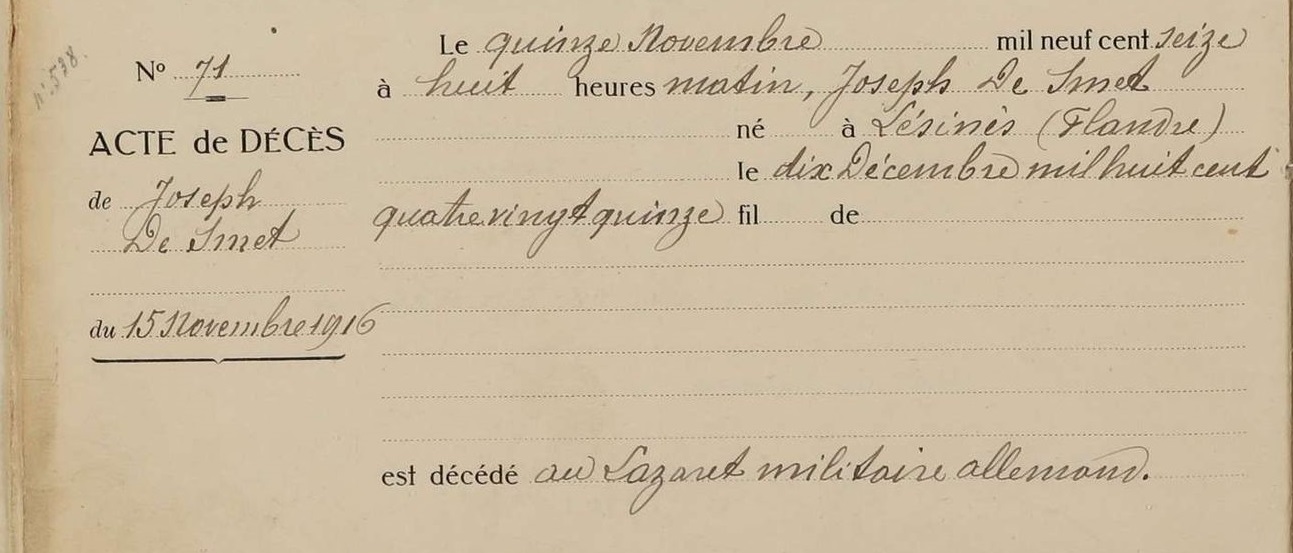 n°. 538.
N° 71
ACTE de DÉCÈS
de Joseph
De Smet
du 15 Novembre 1916
Le quinze Novembre mil neuf cent seize
à huit heures matin, Joseph De Smet
né à Lésinès (Flandre)
le dix Décembre mil huit cent
quatre vingt quinze fil de
est décédé au Lazaret militaire allemand.